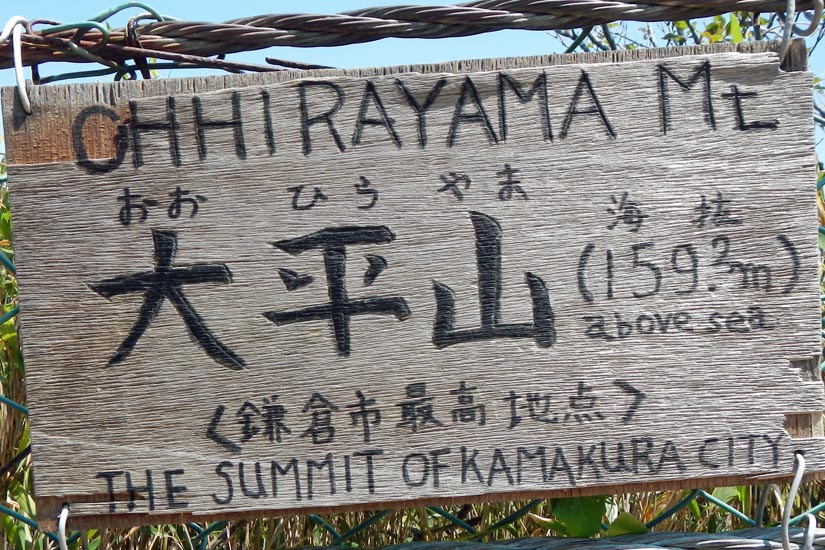 OHHIRAYAMA Mt
おお ひら やま
大平山
海抜
(159.2m)
above sea
〈鎌倉市最高地点〉
THE SUMMIT OF KAMAKURA CITY